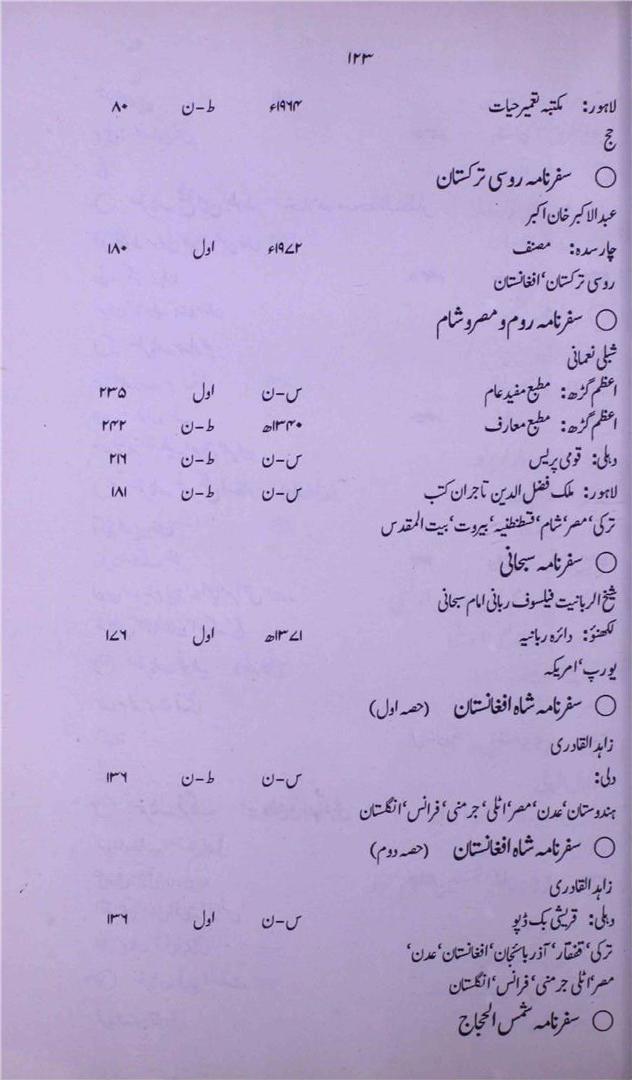 ۱۲۳
لاہور: مکتبہ تعمیر حیات ۱۹۶۴ء ط-ن ۸۰
حج
○ سفر نامہ روسی ترکستان
عبدالاکبر خان اکبر
چارسدہ: مصنف ۱۹۷۲ء اول ۱۸۰
روسی ترکستان، افغانستان
○ سفر نامہ روم و مصر و شام
شبلی نعمانی
اعظم گڑھ: مطبع مفید عام س-ن اول ۲۳۵
اعظم گڑھ: مطبع معارف ۱۳۴۰ھ ط-ن ۲۴۲
دہلی: قومی پریس س-ن ط-ن ۲۱۶
لاہور: ملک فضل الدین تاجران کتب س-ن ط-ن ۱۸۱
ترکی، مصر، شام، قسطنطنیہ، بیروت، بیت المقدس
○ سفر نامہ سبحانی
شیخ الربانیت فیلسوف ربانی امام سبحانی
لکھنؤ: دائرہ ربانیہ ۱۳۷۱ھ اول ۱۷۶
یورپ، امریکہ
○ سفر نامہ شاہ افغانستان (حصہ اول)
زاہد القادری
دلی: س-ن ط-ن ۱۳۶
ہندوستان، عدن، مصر، اٹلی، جرمنی، فرانس، انگلستان
○ سفر نامہ شاہ افغانستان (حصہ دوم)
زاہد القادری
دہلی: قریشی بک ڈپو س-ن اول ۱۳۶
ترکی، قفقار، آذربائجان، افغانستان، عدن،
مصر، اٹلی جرمنی، فرانس، انگلستان
○ سفر نامہ شمس الحجاج